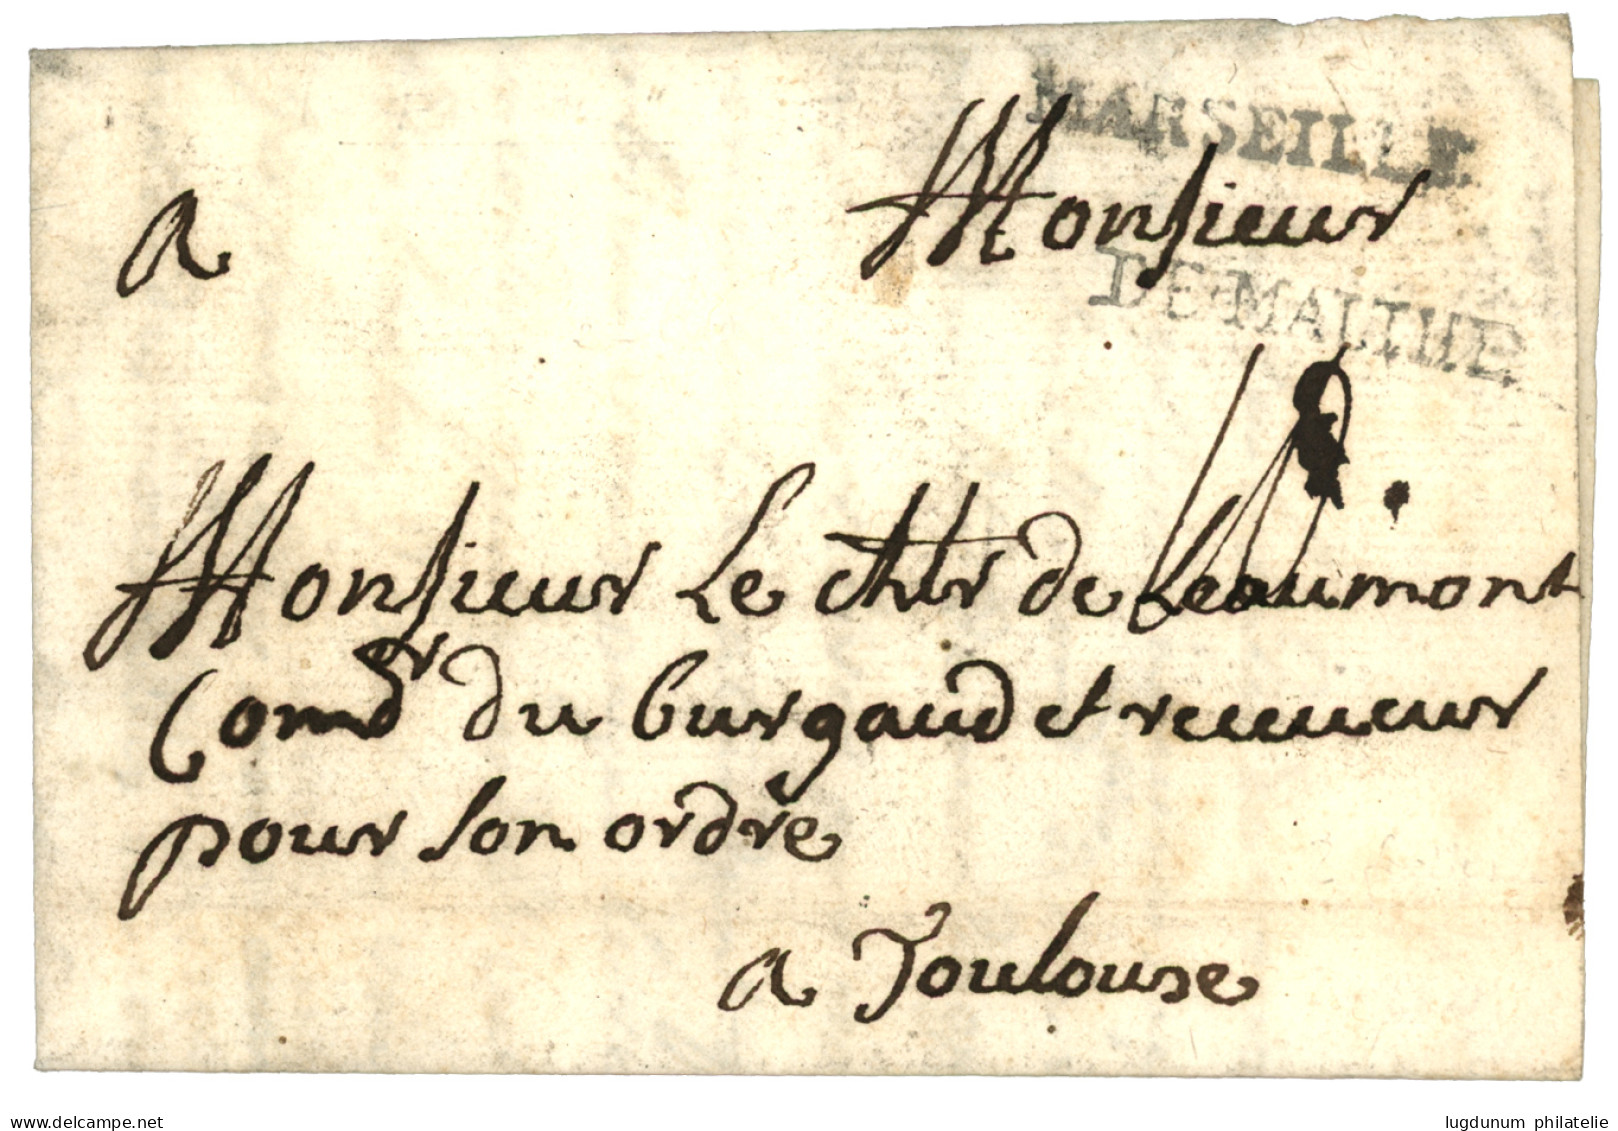 MARSEILLE
a Monsieur
DE MALTHE
Monsieur Le chlr de Leaumont
Comdr du burgaud et receueur
pour son ordre
a Toulouse
www.delcampe.net
lugdunum philatelie